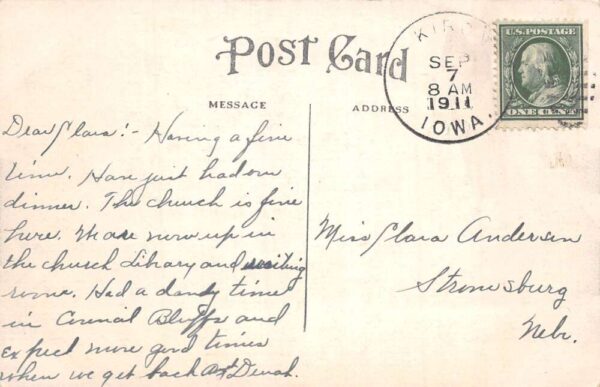 Post Card
KIRON
SEP
7
8 AM
1911
IOWA.
U.S. POSTAGE
ONE CENT
MESSAGE
ADDRESS
Dear Clara:- Having a fine
time. Have just had our
dinner. The church is fine
here. We are now up in
the church Library and writing
room. Had a dandy time
in Council Bluffs and
expect more good times
when we get back
Miss Clara Anderson
Stromsburg
Nebr.